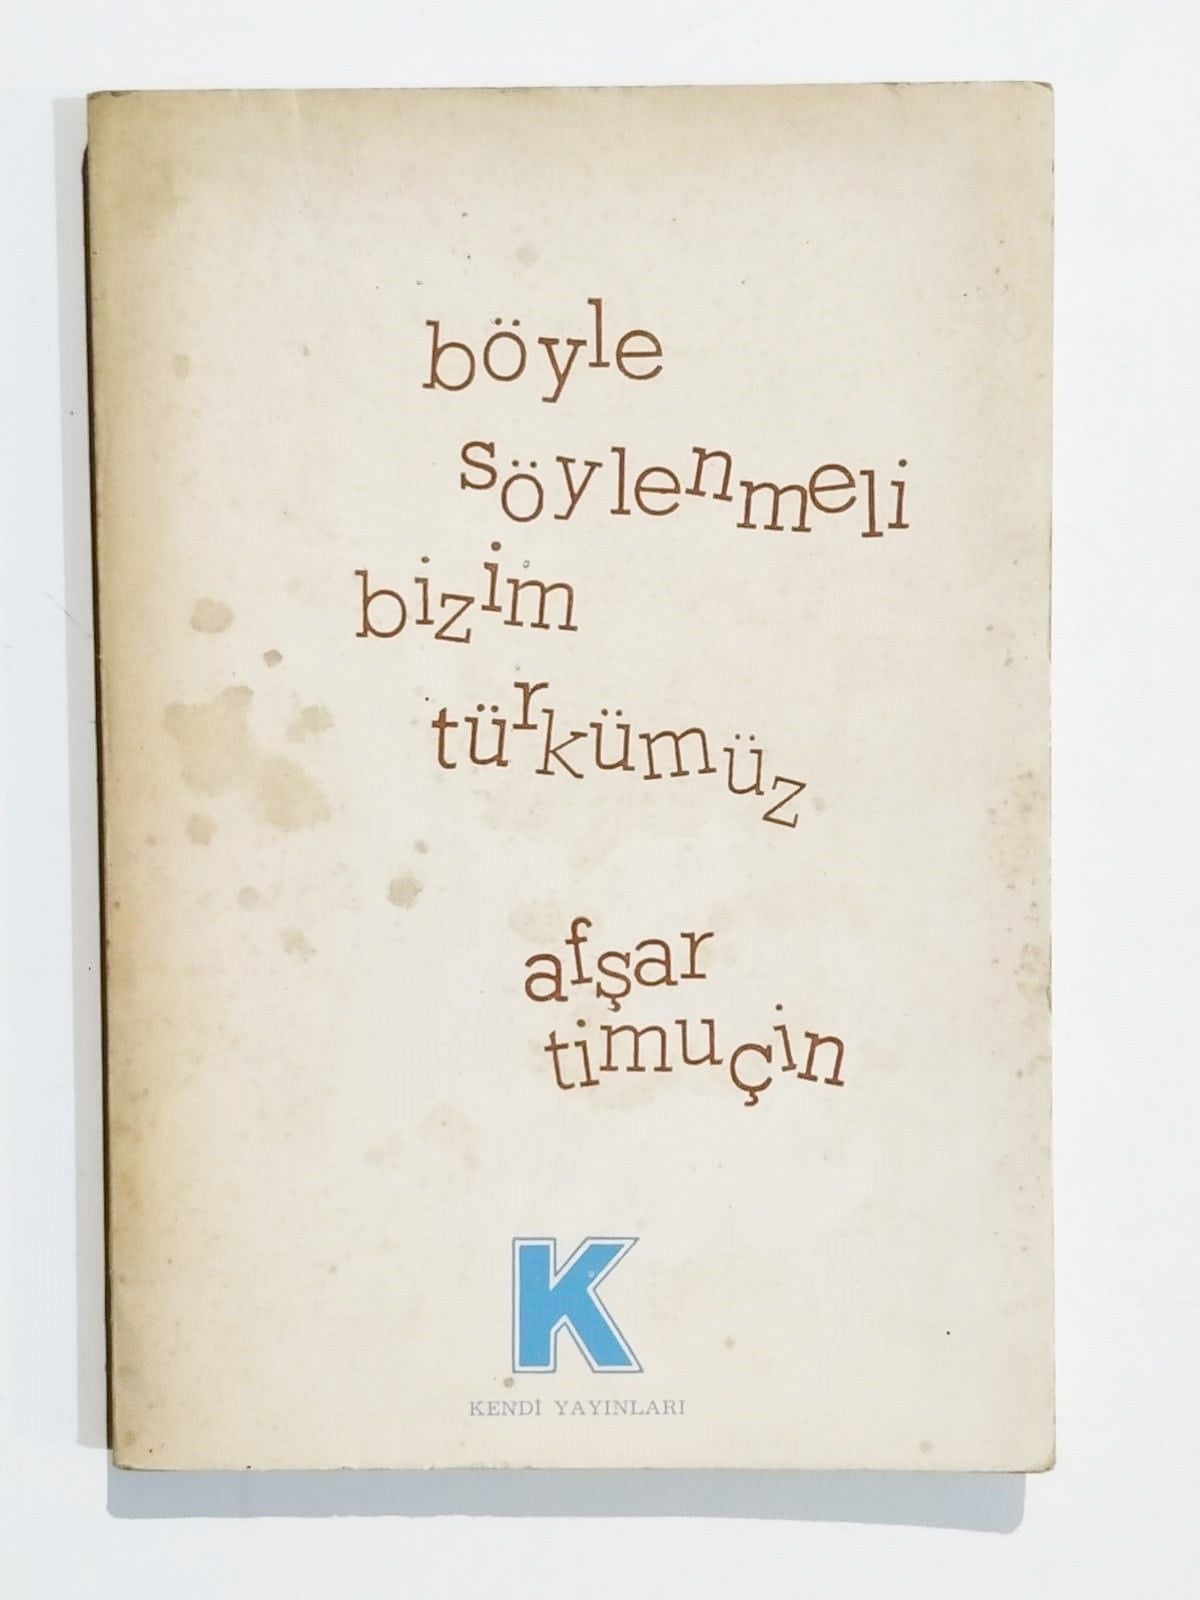 böyle
söylenmeli
bizim
türkümüz
afşar
timuçin
K
KENDİ YAYINLARI